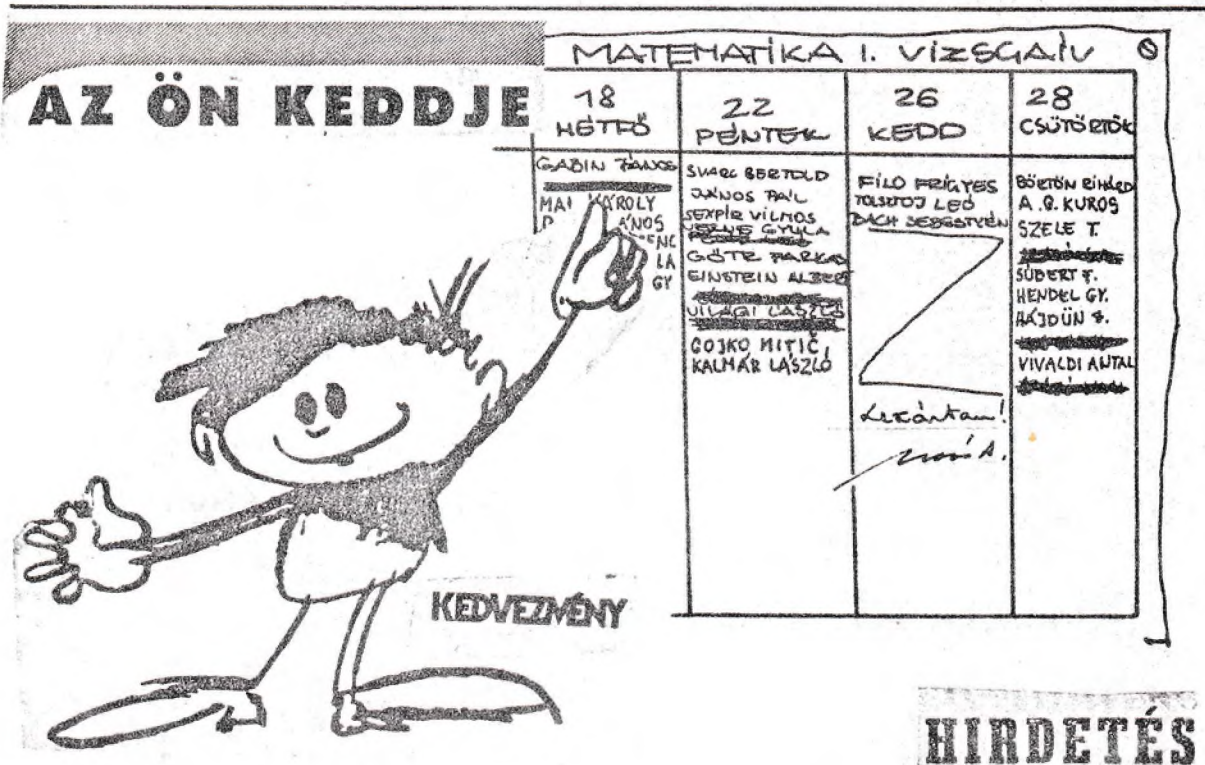 AZ ÖN KEDDJE
MATEMATIKA I. VIZSGAÍV
18
HÉTFŐ
GABIN JÁNOS
MAI KÁROLY
ÁNOS
ENC
LA
GY
22
PÉNTEK
SVARC BERTOLD
JÁNOS PÁL
SEXPÍR VILMOS
VERNE GYULA
GÖTE FARKAS
EINSTEIN ALBERT
VILÁGI LÁSZLÓ
GOJKO MITIČ
KALMÁR LÁSZLÓ
26
KEDD
FILO FRIGYES
TOLSZTOJ LEÓ
BACH SEBESTYÉN
Lezártam!
28
CSÜTÖRTÖK
BÖRTÖN RIHÁRD
A.G. KUROS
SZELE T.
SÚBERT F.
HENDEL GY.
HÁJDÜN
VIVALDI ANTAL
KEDVEZMÉNY
HIRDETÉS